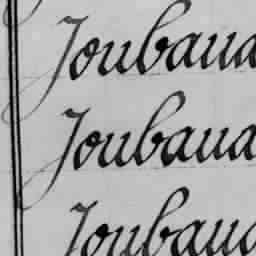 Joubaud
Joubaud
Joubaud